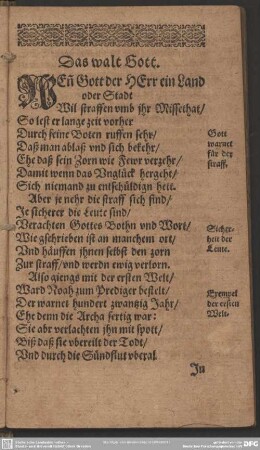 Das walt Gott.
WEñ Gott der HErr ein Land
oder Stadt
Wil straffen vmb jhr Missethat/
So lest er lange zeit vorher
Durch seine Boten ruffen sehr/
Daß man ablaß vnd sich bekehr/
Ehe daß sein Zorn wie Fewr verzehr/
Damit wenn das Vnglück hergeht/
Sich niemand zu entschüldign heit.
Aber je nehr die straff sich find/
Je sicherer die Leute sind/
Verachten Gottes Bothn vnd Wort/
Wie geschrieben ist an manchem ort/
Vnd häuffen jhnen selbst den zorn
Zur straff/ vnd werdn ewig verlorn.
Also giengs mit der ersten Welt/
Ward Noah zum Prediger bestelt/
Der warnet hundert zwantzig Jahr/
Ehe denn die Archa fertig war:
Sie abr verlachten jhn mit spott/
Biß daß sie vbereilt der Todt/
Vnd durch die Sündflut vberal
In
Gott
warnet
für der
straff.
Sicher-
heit der
Leute.
Exempel
der ersten
Welt.
DFG